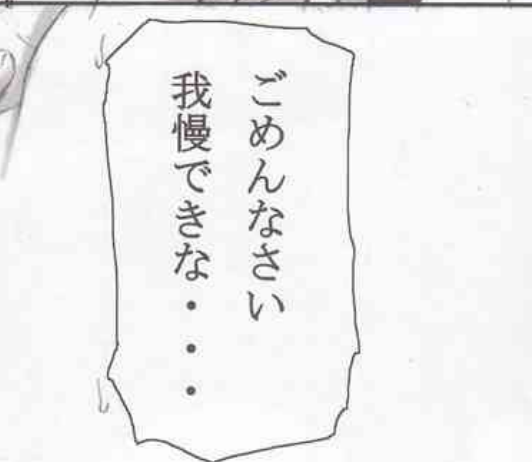 ごめんなさい
我慢できな・・・